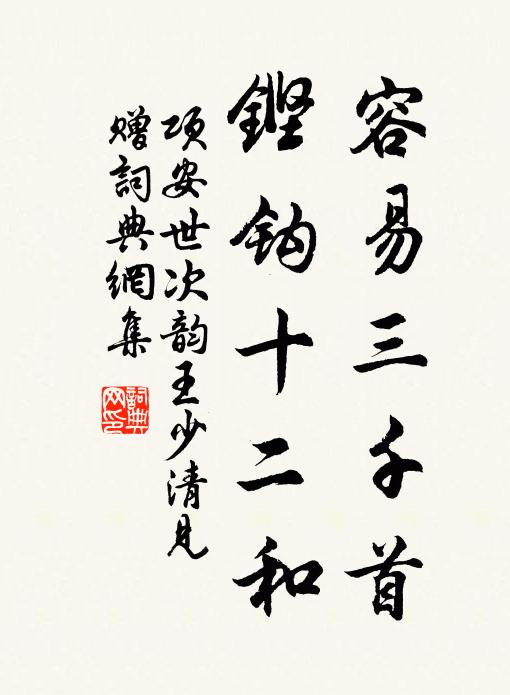 容易三千首
鏗鈎十二和
項安世次韵王少清見
贈詞典網集
詞典网印